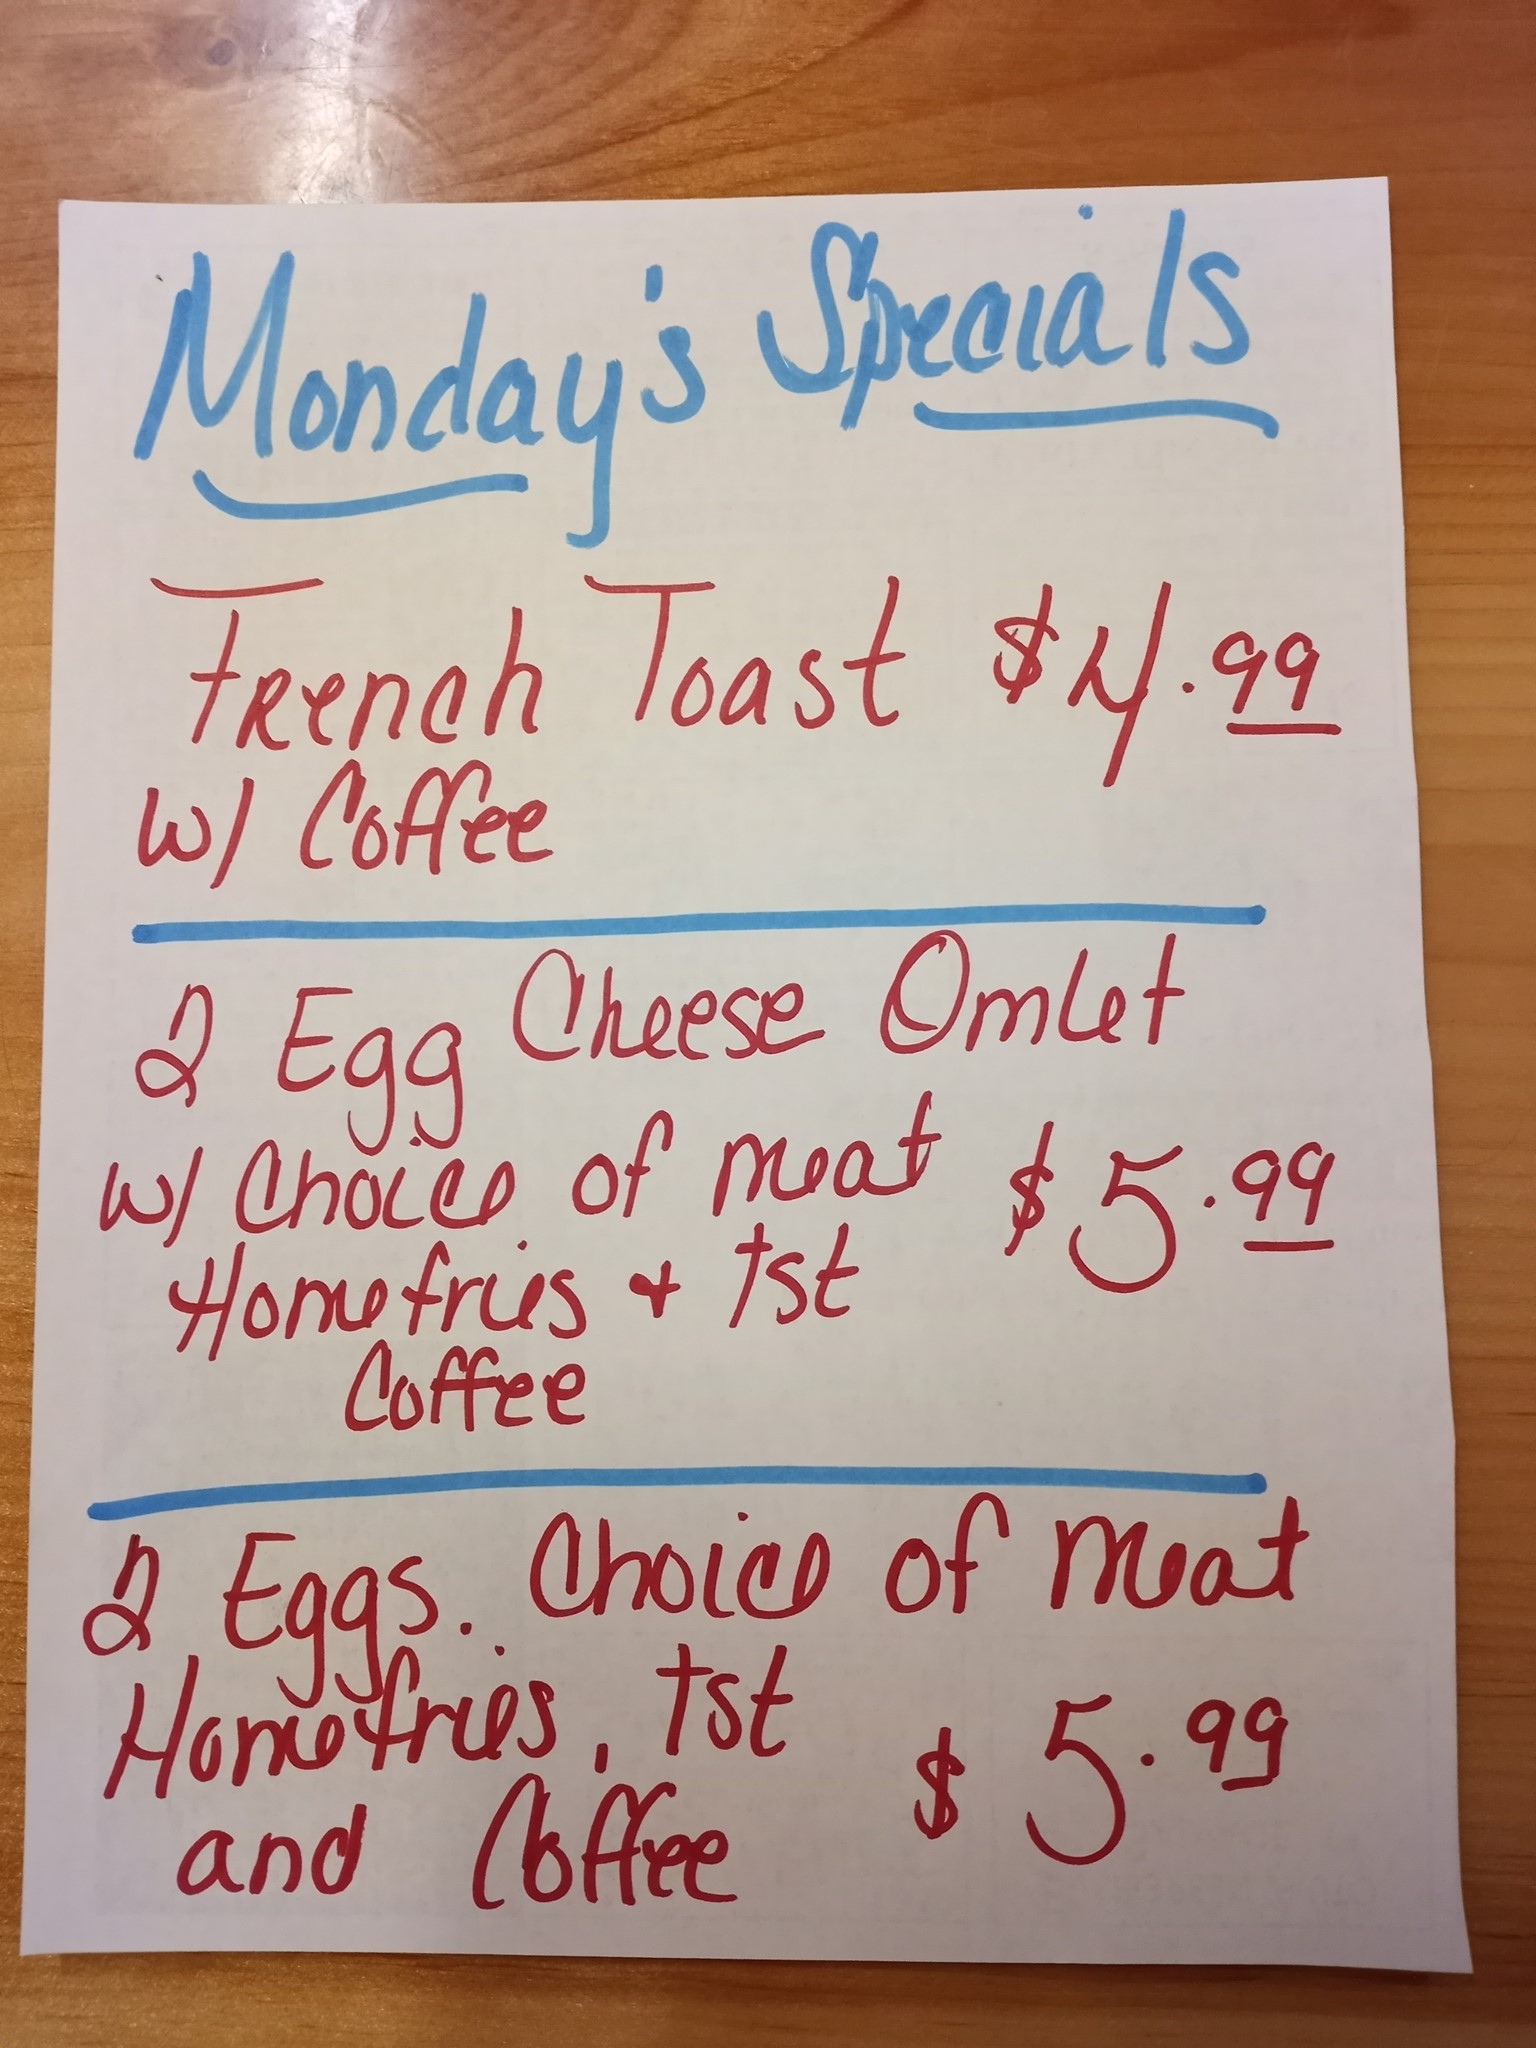 Monday's Specials
French Toast $4.99
w/ Coffee
2 Egg Cheese Omlet
w/ Choice of meat $5.99
Homefries + tst
Coffee
2 Eggs. Choice of Meat
Homefries, tst
and Coffee $5.99